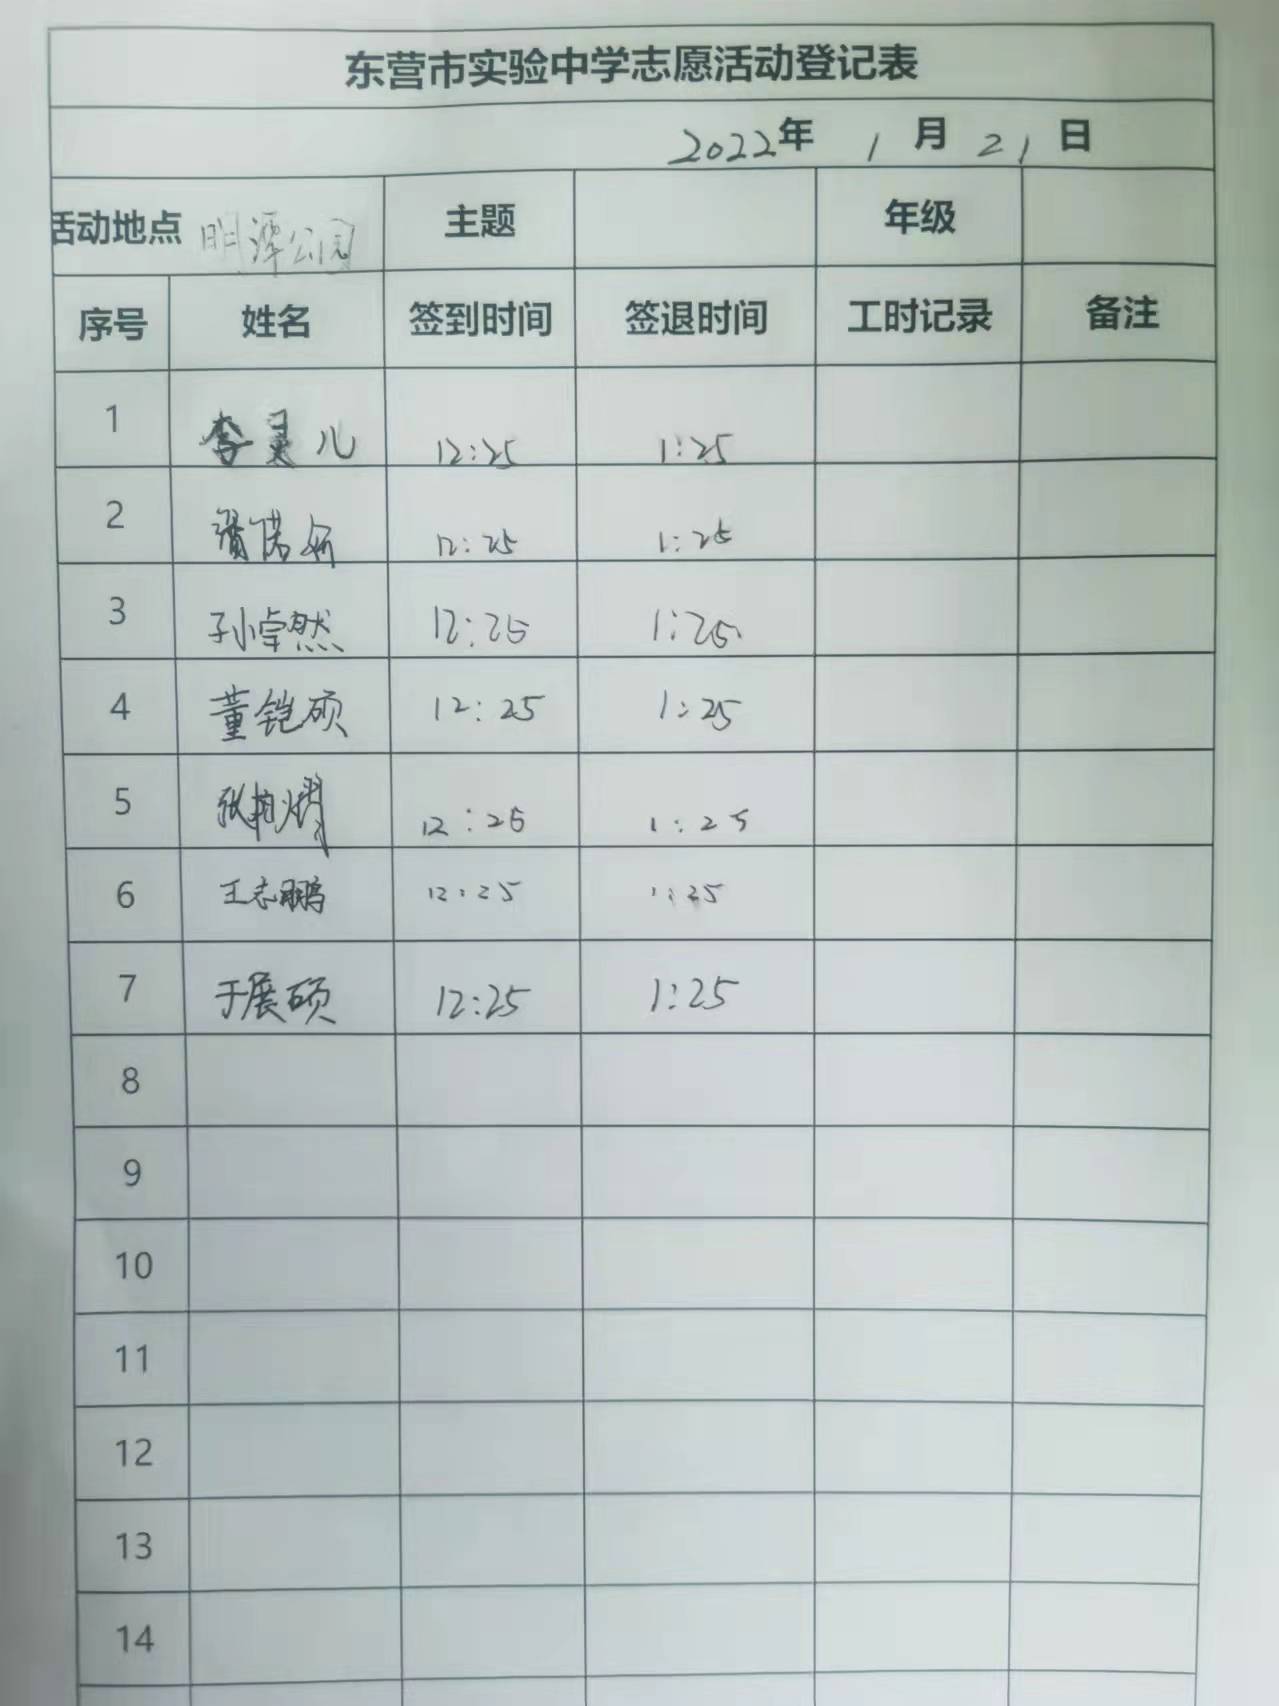 东营市实验中学志愿活动登记表
2022年 1 月 21 日
活动地点 明潭公园 主题 年级
序号 姓名 签到时间 签退时间 工时记录 备注
1 李灵儿 12:25 1:25
2 12:25 1:25
3 孙卓然 12:25 1:25
4 董铠硕 12:25 1:25
5 张柏熠 12:25 1:25
6 王志鹏 12:25 1:25
7 于展硕 12:25 1:25
8
9
10
11
12
13
14